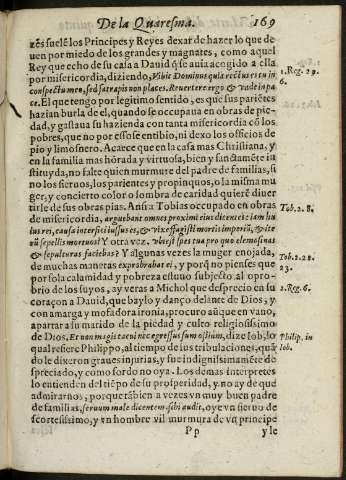 De la Quaresma. 169
zes suelẽ los Principes y Reyes dexar de hazer lo que de
uen por miedo de los grandes y magnates, como aquel
Rey que echo de su casa a Dauid q̃ se auia acogido a ella
por misericordia, diziendo, Viuit Dominus quia rectus es tu in
conspectu meo, sed satrapis non places. Reuertere ergo & vade in pa
ce. El que tengo por legitimo sentido, es que sus pariẽtes
hazian burla de el, quando se occupaua en obras de pie-
dad, y gastaua su hazienda con tanta misericordia cõ los
pobres, que no por esso se entibio, ni dexo los officios de
pio y limosnero. Acaece que en la casa mas Christiana, y
en la familia mas hõrada y virtuosa, bien y sanctamẽte in
stituyda, no falte quien murmure del padre de familias, si
no los sieruos, los parientes y propinquos, o la misma mu
ger, y concierto color o sombra de caridad quierẽ diuer
tirle de sus obras pias. Ansi a Tobias occupado en obras
de misericordia, arguebant omnes proximi eius dicentes: iam hu
ius rei, causa interfici iussus es, & vix effugisti mortis imperiũ, & ite
rũ sepellis mortuos? Y otra vez. vbi est spes tua pro qua elemosinas
& sepulturas faciebas? Y algunas vezes la muger enojada,
de muchas maneras exprobrabat ei, y porq̃ no pienses que
por sola calamidad y pobreza estuuo subjecto al opro-
brio de los suyos, ay veras a Michol que desprecio en su
coraçon a Dauid, que baylo y danço delante de Dios, y
con amarga y mofadora ironia, procuro aũque en vano,
apartar a su marido de la piedad y culto religiosissimo
de Dios. Et non magis taceni nec egressus sum ostium, dize Iob, lo
qual refiere Philippo, al tiempo de sus tribulaciones, quã
do le dixeron graues injurias, y fue indignissimamẽte de
spreciado, y como sordo no oya. Los demas interpretes
lo entienden del tiẽpo de su prosperidad, y no ay de que
admirarnos, porque tãbien a vezes vn muy buen padre
de familias, seruum male dicentem sibi audit, oye vn sieruo de
scortesissimo, y vn hombre vil murmura de vn principe
Pp y le
1. Reg. 29.
6.
Tob. 2. 8.
Tob. 2. 22.
23.
2. Reg. 6.
Philip. in
Iob.